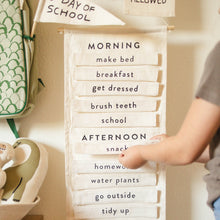 DAY OF
SCHOOL
ALLOWED
MORNING
make bed
breakfast
get dressed
brush teeth
school
AFTERNOON
snack
homework
water plants
go outside
tidy up